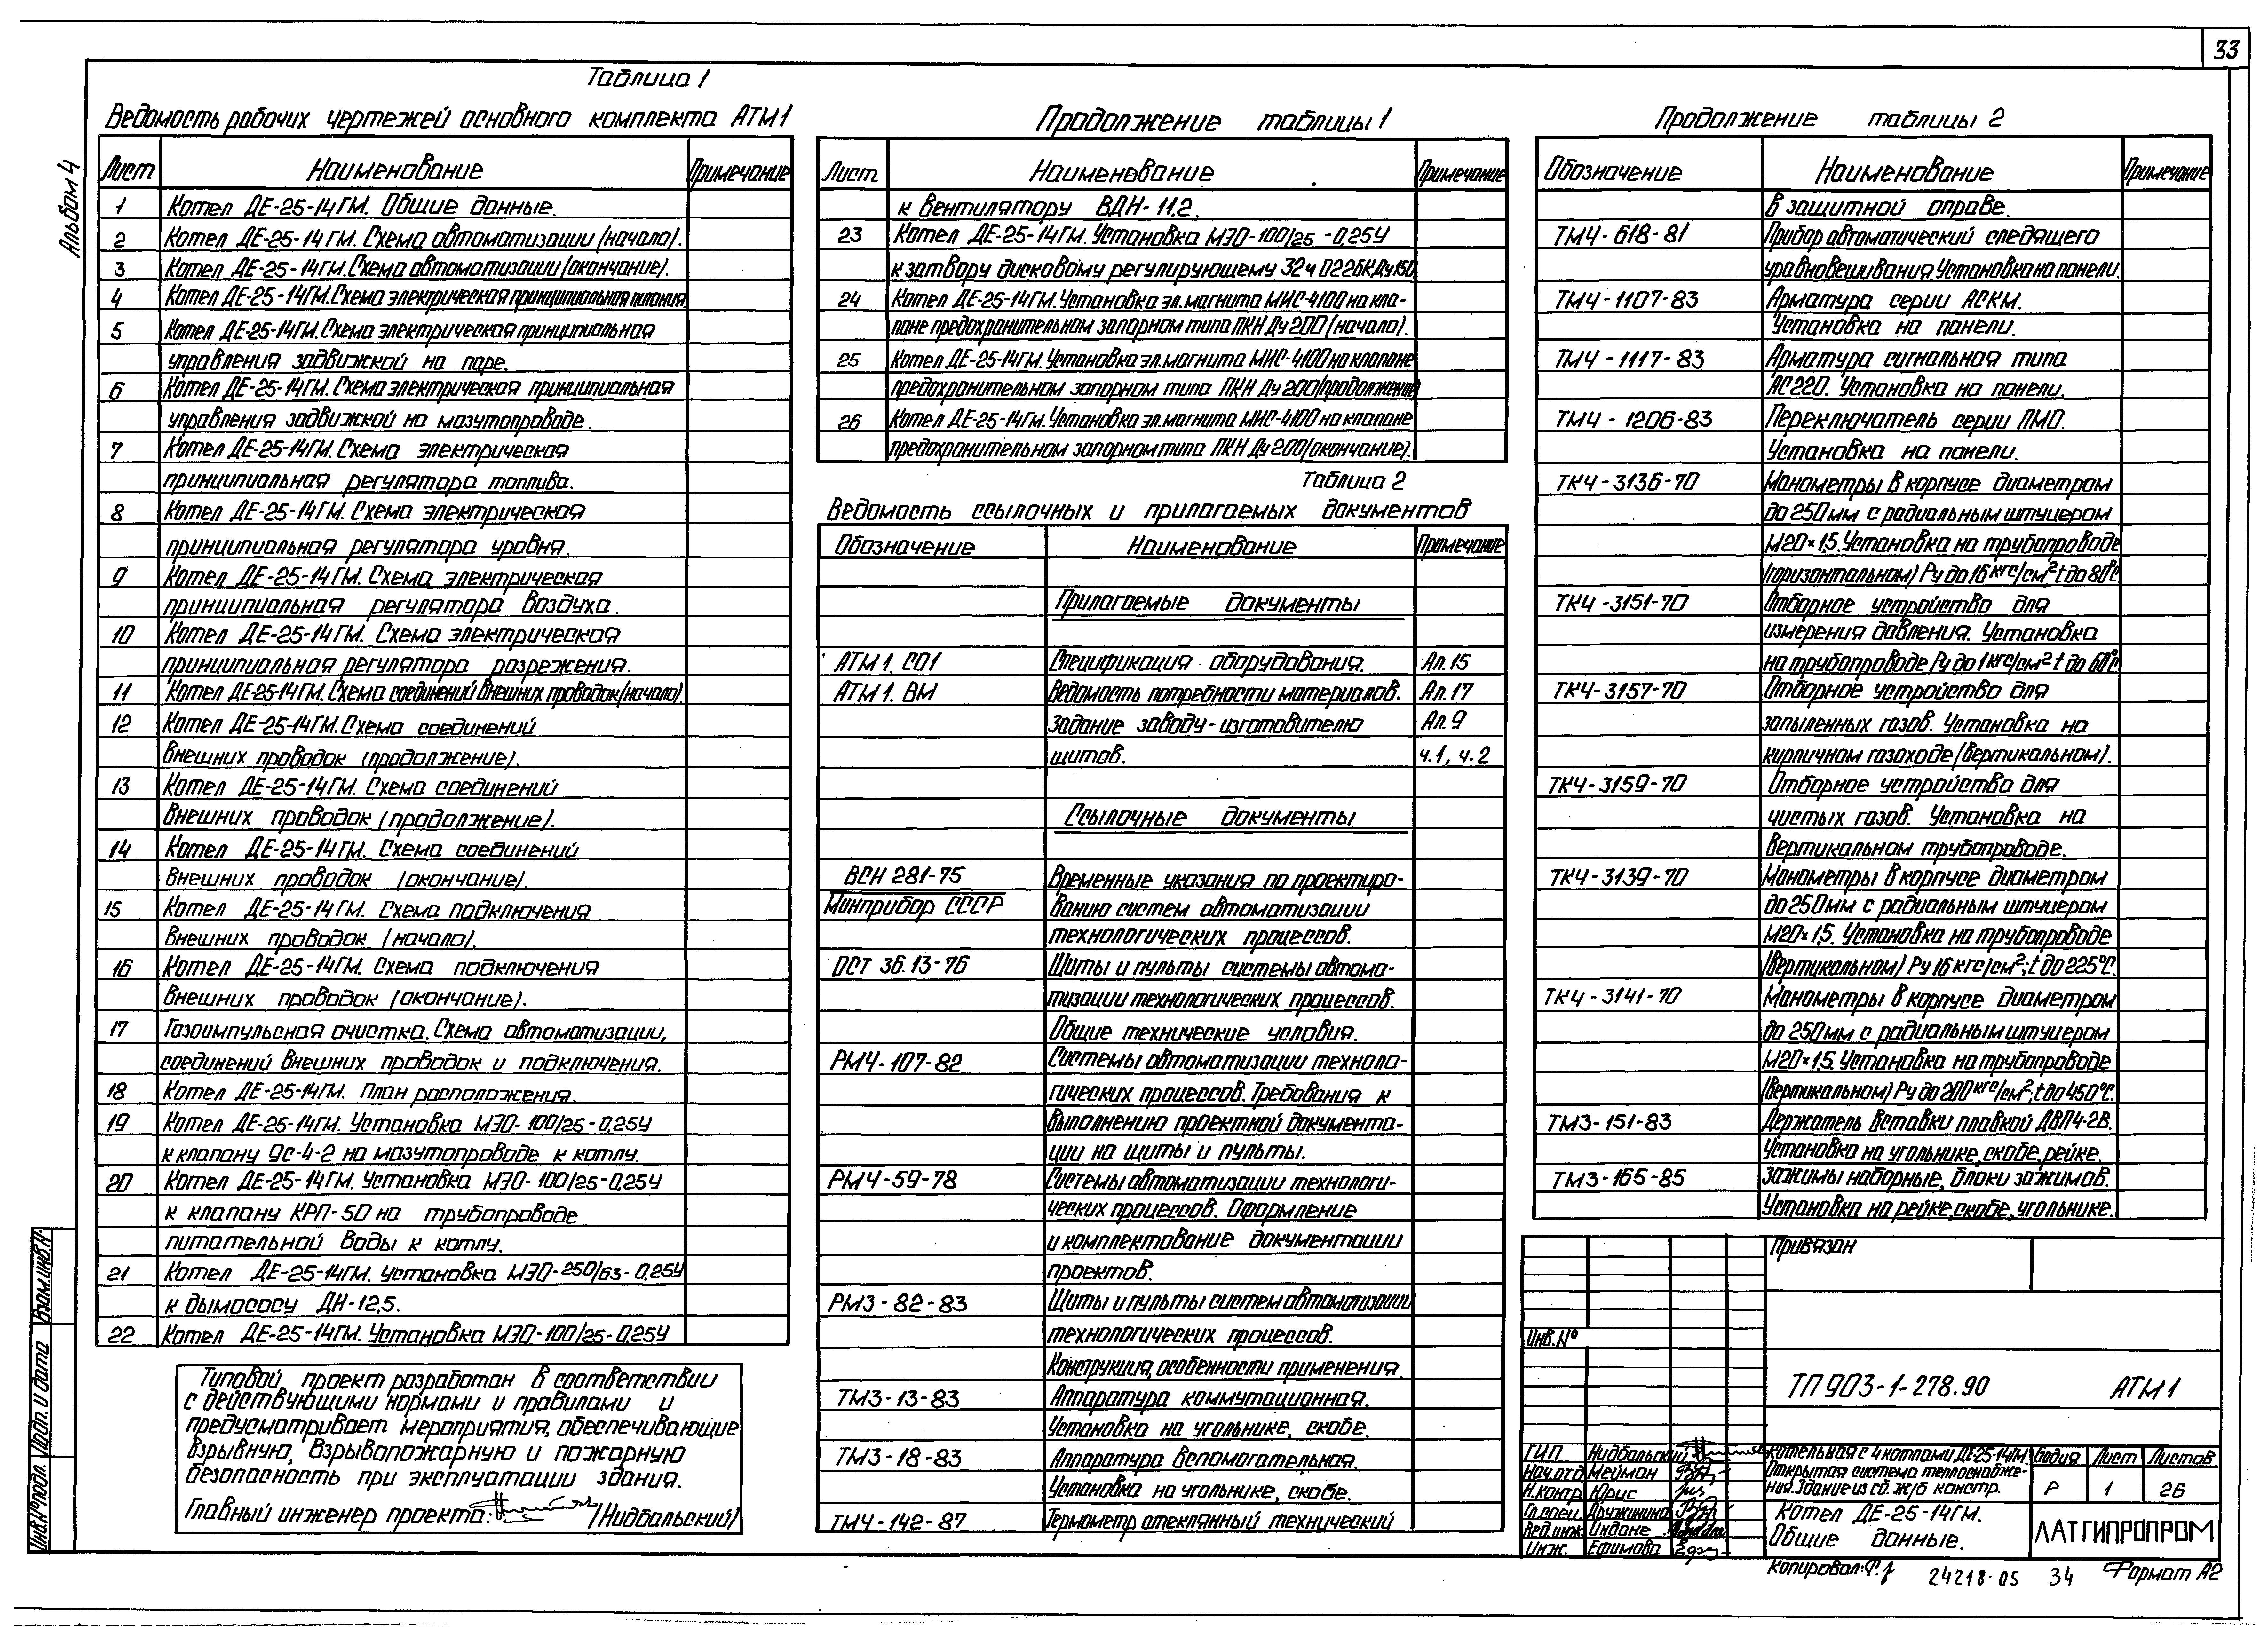 33
Альбом 4
Таблица 1
Ведомость рабочих чертежей основного комплекта АТМ1
Лист Наименование Примечание
1 Котел ДЕ-25-14ГМ. Общие данные.
2 Котел ДЕ-25-14ГМ. Схема автоматизации (начало).
3 Котел ДЕ-25-14ГМ. Схема автоматизации (окончание).
4 Котел ДЕ-25-14ГМ. Схема электрическая принципиальная питания
5 Котел ДЕ-25-14ГМ. Схема электрическая принципиальная
управления задвижкой на паре.
6 Котел ДЕ-25-14ГМ. Схема электрическая принципиальная
управления задвижкой на мазутопроводе.
7 Котел ДЕ-25-14ГМ. Схема электрическая
принципиальная регулятора топлива.
8 Котел ДЕ-25-14ГМ. Схема электрическая
принципиальная регулятора уровня.
9 Котел ДЕ-25-14ГМ. Схема электрическая
принципиальная регулятора воздуха.
10 Котел ДЕ-25-14ГМ. Схема электрическая
принципиальная регулятора разрежения.
11 Котел ДЕ-25-14ГМ. Схема соединений внешних проводок (начало).
12 Котел ДЕ-25-14ГМ. Схема соединений
внешних проводок (продолжение).
13 Котел ДЕ-25-14ГМ. Схема соединений
внешних проводок (продолжение).
14 Котел ДЕ-25-14ГМ. Схема соединений
внешних проводок (окончание).
15 Котел ДЕ-25-14ГМ. Схема подключения
внешних проводок (начало).
16 Котел ДЕ-25-14ГМ. Схема подключения
внешних проводок (окончание).
17 Газоимпульсная очистка. Схема автоматизации,
соединений внешних проводок и подключения.
18 Котел ДЕ-25-14ГМ. План расположения.
19 Котел ДЕ-25-14ГМ. Установка МЭО-100/25-0,25У
к клапану 9с-4-2 на мазутопроводе к котлу.
20 Котел ДЕ-25-14ГМ. Установка МЭО-100/25-0,25У
к клапану КРП-50 на трубопроводе
питательной воды к котлу.
21 Котел ДЕ-25-14ГМ. Установка МЭО-250/63-0,25У
к дымососу ДН-12,5.
22 Котел ДЕ-25-14ГМ. Установка МЭО-100/25-0,25У
Типовой проект разработан в соответствии
с действующими нормами и правилами и
предусматривает мероприятия, обеспечивающие
взрывную, взрывопожарную и пожарную
безопасность при эксплуатации здания.
Главный инженер проекта: /Нидбальский/
Продолжение таблицы 1
Лист Наименование Примечание
к вентилятору ВДН-11,2.
23 Котел ДЕ-25-14ГМ. Установка МЭО-100/25-0,25У
к затвору дисковому регулирующему 32ч022БК Ду150
24 Котел ДЕ-25-14ГМ. Установка эл. магнита МИС-4100 на кла-
пане предохранительном запорном типа ПКН Ду 200 (начало).
25 Котел ДЕ-25-14ГМ. Установка эл. магнита МИС-4100 на клапане
предохранительном запорном типа ПКН Ду 200 (продолжение)
26 Котел ДЕ-25-14ГМ. Установка эл. магнита МИС-4100 на клапане
предохранительном запорном типа ПКН Ду 200 (окончание).
Таблица 2
Ведомость ссылочных и прилагаемых документов
Обозначение Наименование Примечание
Прилагаемые документы
АТМ1. СО1 Спецификация оборудования. Ал. 15
АТМ1. ВМ Ведомость потребности материалов. Ал. 17
Задание заводу-изготовителю Ал. 9
щитов. ч.1, ч.2
Ссылочные документы
ВСН 281-75 Временные указания по проектиро-
Минприбор СССР ванию систем автоматизации
технологических процессов.
ОСТ 36.13-76 Щиты и пульты системы автома-
тизации технологических процессов.
Общие технические условия.
РМ4-107-82 Системы автоматизации техноло-
гических процессов. Требования к
выполнению проектной документа-
ции на щиты и пульты.
РМ4-59-78 Системы автоматизации технологи-
ческих процессов. Оформление
и комплектование документации
проектов.
РМ3-82-83 Щиты и пульты систем автоматизации
технологических процессов.
Конструкция, особенности применения.
ТМ3-13-83 Аппаратура коммутационная.
Установка на угольнике, скобе.
ТМ3-18-83 Аппаратура вспомогательная.
Установка на угольнике, скобе.
ТМ4-142-87 Термометр стеклянный технический
Продолжение таблицы 2
Обозначение Наименование Примечание
в защитной оправе.
ТМ4-618-81 Прибор автоматический следящего
уравновешивания. Установка на панели.
ТМ4-1107-83 Арматура серии АСКМ.
Установка на панели.
ТМ4-1117-83 Арматура сигнальная типа
АС220. Установка на панели.
ТМ4-1206-83 Переключатель серии ПМО.
Установка на панели.
ТК4-3136-70 Манометры в корпусе диаметром
до 250мм с радиальным штуцером
М20×1,5. Установка на трубопроводе
(горизонтальном) Ру до 16 кгс/см², t до 80°С
ТК4-3151-70 Отборное устройство для
измерения давления. Установка
на трубопроводе Ру до 1 кгс/см² t до 60°С
ТК4-3157-70 Отборное устройство для
запыленных газов. Установка на
кирпичном газоходе (вертикальном).
ТК4-3159-70 Отборное устройство для
чистых газов. Установка на
вертикальном трубопроводе.
ТК4-3139-70 Манометры в корпусе диаметром
до 250мм с радиальным штуцером
М20×1,5. Установка на трубопроводе
(вертикальном) Ру 16 кгс/см²; t до 225°С.
ТК4-3141-70 Манометры в корпусе диаметром
до 250мм с радиальным штуцером
М20×1,5. Установка на трубопроводе
(вертикальном) Ру до 200 кгс/см²; t до 450°С.
ТМ3-151-83 Держатель вставки плавкой ДВП4-2В.
Установка на угольнике, скобе, рейке.
ТМ3-165-85 Зажимы наборные, блоки зажимов.
Установка на рейке, скобе, угольнике.
Привязан
Инв. №
ТП 903-1-278.90 АТМ1
ГИП Нидбальский
Нач.отд Мейман
Н.контр Юрис
Гл.спец. Дружинина
Вед.инж. Индане
Инж. Ефимова
Котельная с 4 котлами ДЕ-25-14ГМ.
Открытая система теплоснабже-
ния. Здание из сб. ж/б констр.
Стадия Лист Листов
Р 1 26
Котел ДЕ-25-14ГМ.
Общие данные.
ЛАТГИПРОПРОМ
Копировал: 24218-05 34 Формат А2
Взам.инв.№
Подп. и дата
Инв.№ подл.